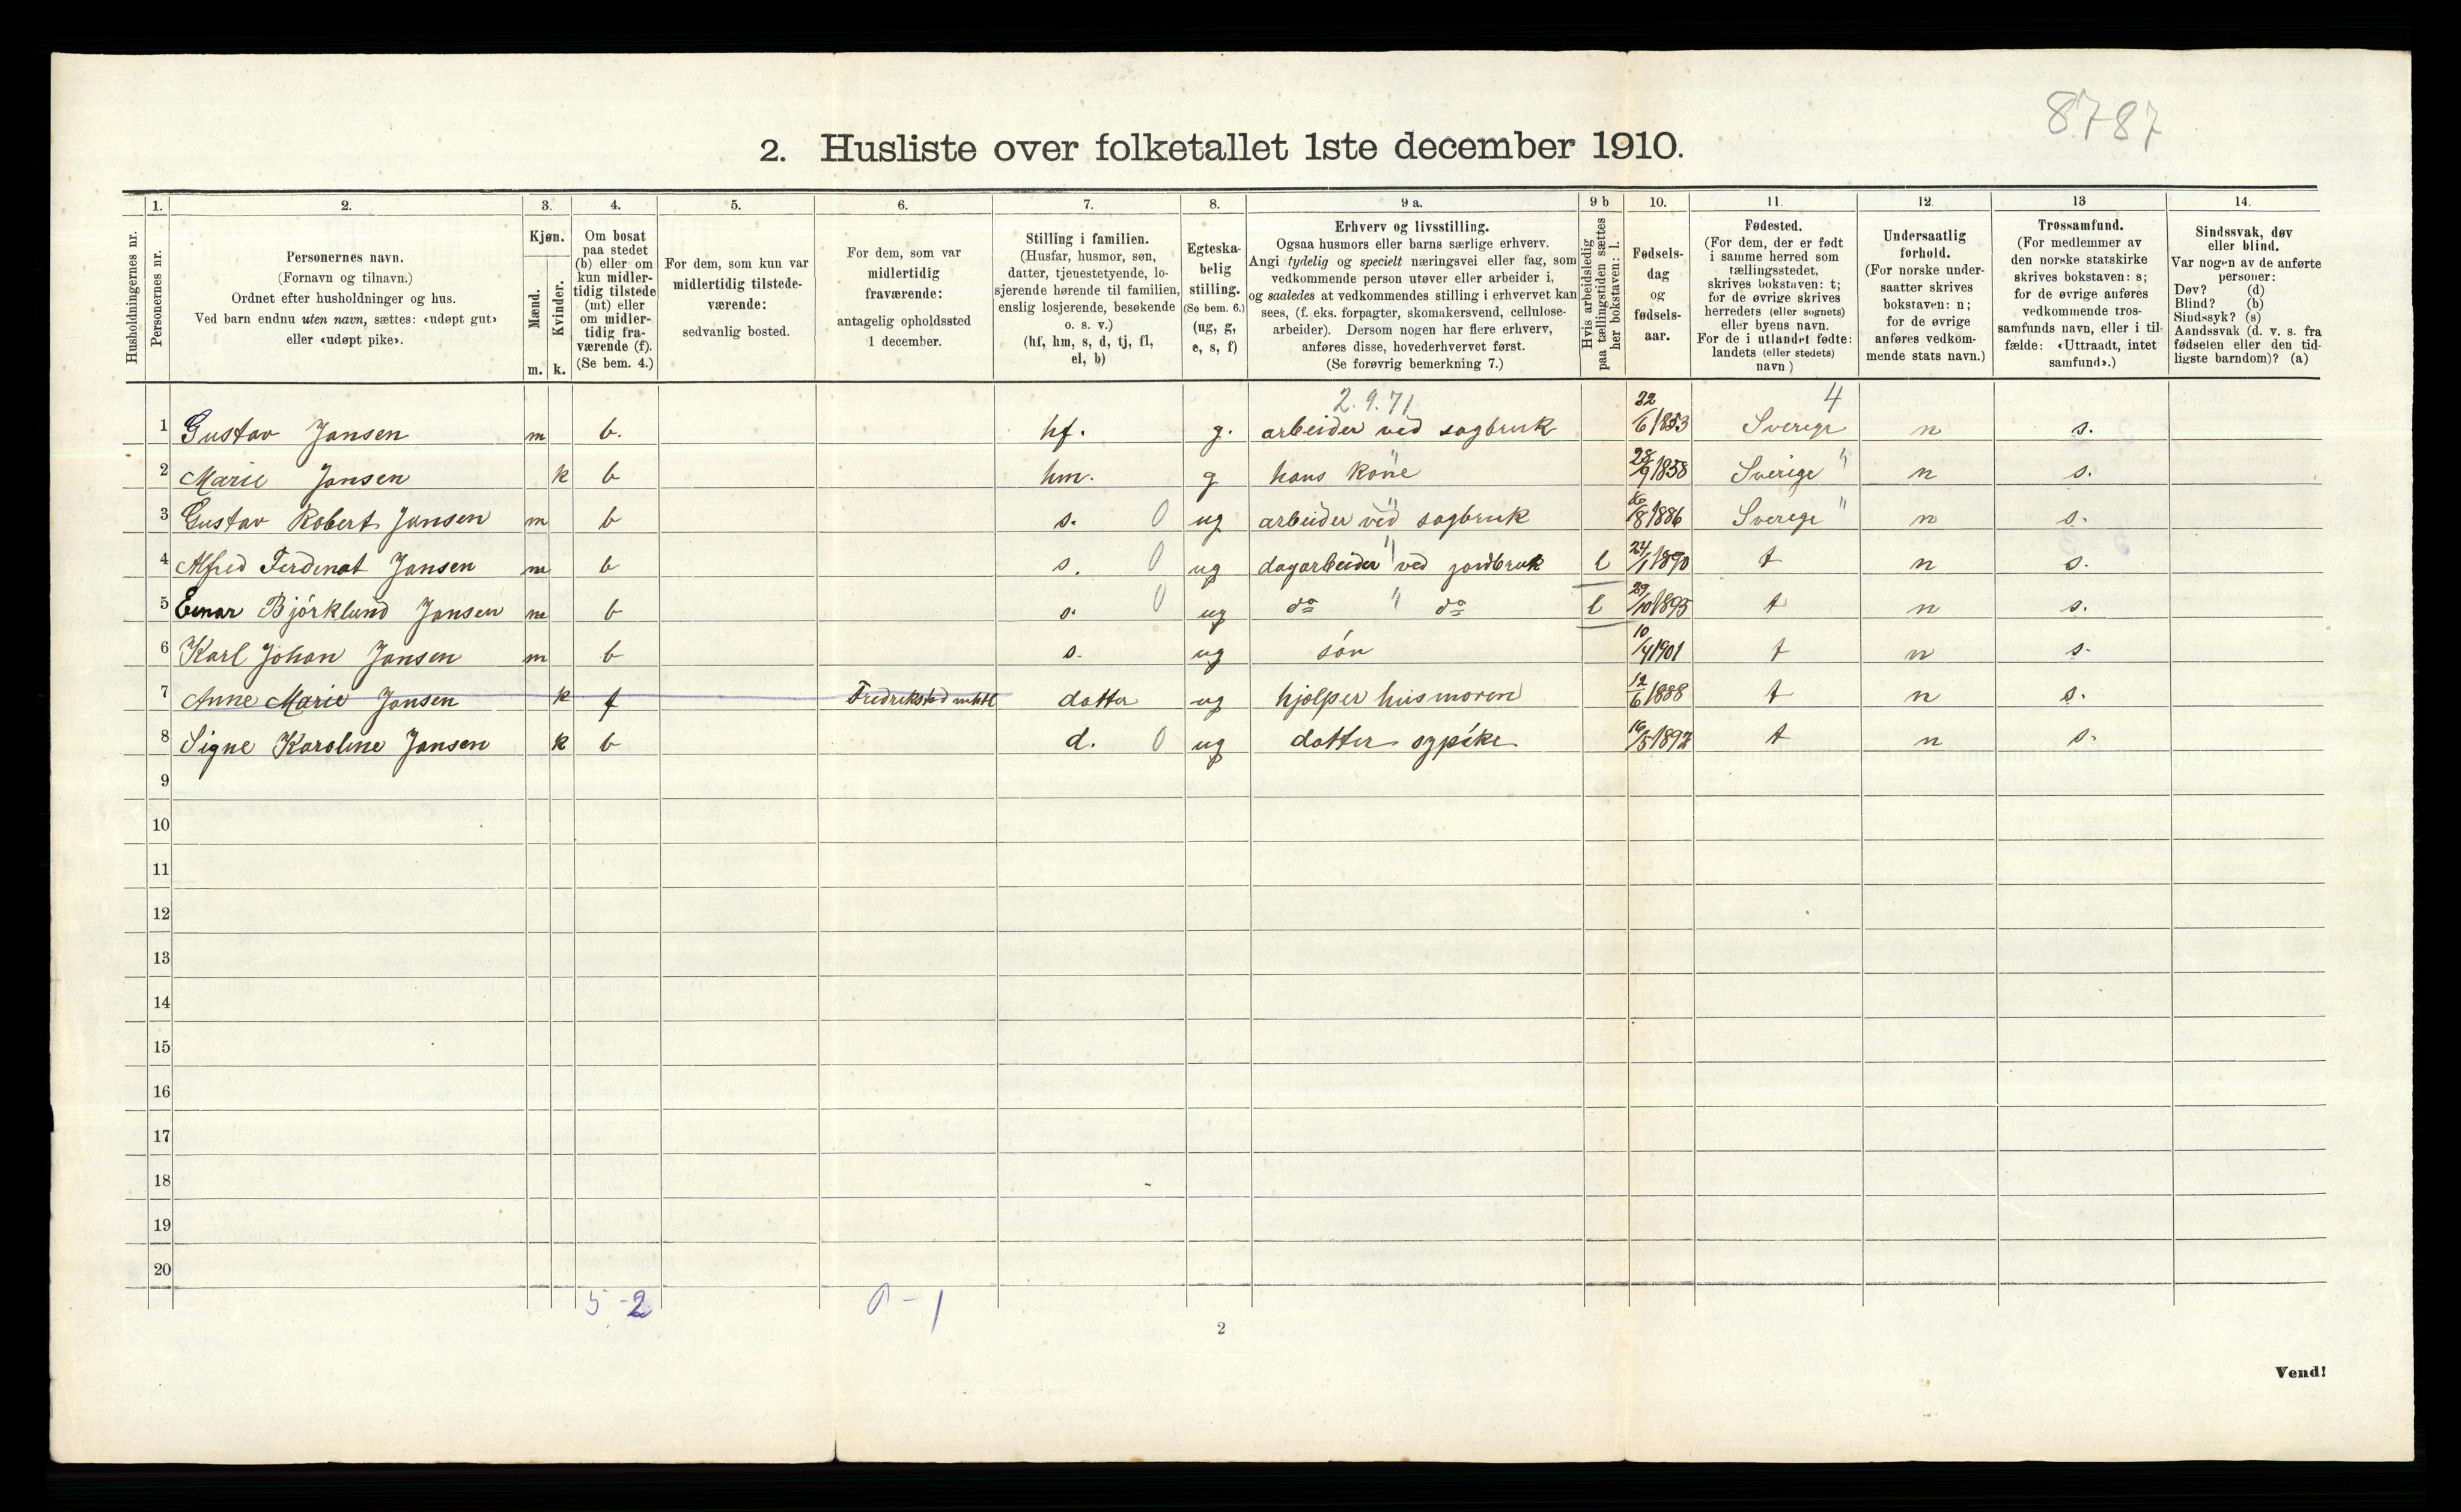 8787
2. Husliste over folketallet 1ste december 1910.
Husholdningernes nr.
1.
Personernes nr.
2.
Personernes navn.
(Fornavn og tilnavn.)
Ordnet efter husholdninger og hus.
Ved barn endnu uten navn, sættes: «udøpt gut»
eller «udøpt pike».
3.
Kjøn.
Mænd.
Kvinder.
m. k.
4.
Om bosat
paa stedet
(b) eller om
kun midler-
tidig tilstede
(mt) eller
om midler-
tidig fra-
værende (f).
(Se bem. 4.)
5.
For dem, som kun var
midlertidig tilstede-
værende:
sedvanlig bosted.
6.
For dem, som var
midlertidig
fraværende:
antagelig opholdssted
1 december.
7.
Stilling i familien.
(Husfar, husmor, søn,
datter, tjenestetyende, lo-
sjerende hørende til familien,
enslig losjerende, besøkende
o. s. v.)
(hf, hm, s, d, tj, fl,
el, b)
8.
Egteska-
belig
stilling.
(Se bem. 6.)
(ug, g,
e, s, f)
9 a.
Erhverv og livsstilling.
Ogsaa husmors eller barns særlige erhverv.
Angi tydelig og specielt næringsvei eller fag, som
vedkommende person utøver eller arbeider i,
og saaledes at vedkommendes stilling i erhvervet kan
sees, (f. eks. forpagter, skomakersvend, cellulose-
arbeider). Dersom nogen har flere erhverv,
anføres disse, hovederhvervet først.
(Se forøvrig bemerkning 7.)
9 b
Hvis arbeidsledig
paa tællingstiden sættes
her bokstaven: l.
10.
Fødsels-
dag
og
fødsels-
aar.
11.
Fødested.
(For dem, der er født
i samme herred som
tællingsstedet,
skrives bokstaven: t;
for de øvrige skrives
herredets (eller sognets)
eller byens navn.
For de i utlandet fødte:
landets (eller stedets)
navn.)
12.
Undersaatlig
forhold.
(For norske under-
saatter skrives
bokstaven: n;
for de øvrige
anføres vedkom-
mende stats navn.)
13
Trossamfund.
(For medlemmer av
den norske statskirke
skrives bokstaven: s;
for de øvrige anføres
vedkommende tros-
samfunds navn, eller i til-
fælde: «Uttraadt, intet
samfund».)
14.
Sindssvak, døv
eller blind.
Var nogen av de anførte
personer:
Døv? (d)
Blind? (b)
Sindssyk? (s)
Aandssvak (d. v. s. fra
fødselen eller den tid-
ligste barndom)? (a)
2.9.71 4
1 Gustav Jansen m b. hf. g. arbeider ved sagbruk 22/6 1853 Sverige n s.
2 Marie Jansen k b hm. g hans kone " 28/9 1858 Sverige " n s.
3 Gustav Robert Jansen m b s. 0 ug arbeider ved sagbruk " 16/8 1886 Sverige " n s.
4 Alfred Ferdinat Jansen m b s. 0 ug dagarbeider ved jordbruk " l 24/1 1890 t n s.
5 Einar Bjørklund Jansen m b s. 0 ug do " do l 29/10 1895 t n s.
6 Karl Johan Jansen m b s. ug søn 10/4 1901 t n s.
7 Anne Marie Jansen k f Fredrikstad datter ug hjelper husmoren 12/6 1888 t n s.
8 Signe Karoline Jansen k b d. 0 ug datter sypike 16/5 1892 t n s.
9
10
11
12
13
14
15
16
17
18
19
20
5 - 2 0 - 1
2
Vend!